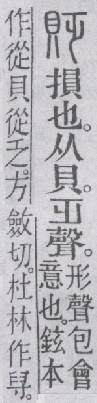 貶損也。从貝。乏聲。
形聲包會
意也。鉉本
作從貝從乏。方斂切。杜林作